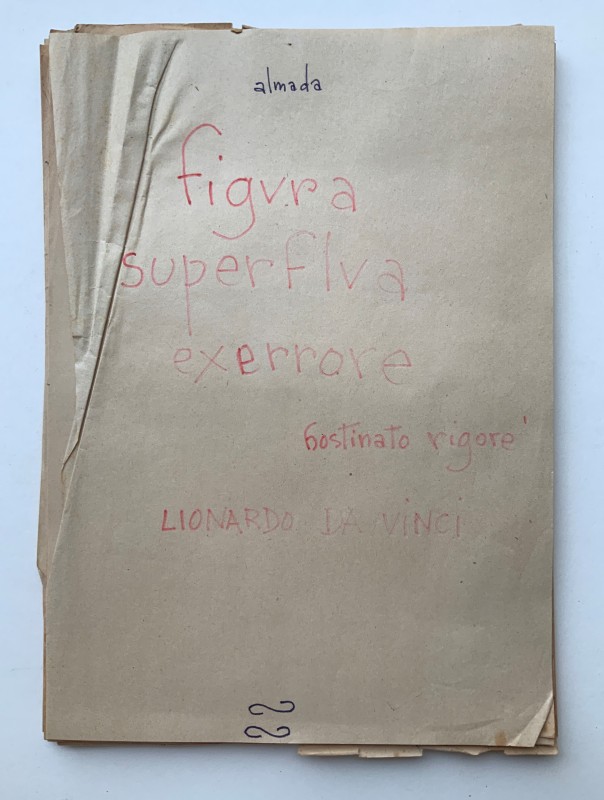 almada
figvra
superflva
exerrore
hostinato rigore
LIONARDO DA VINCI